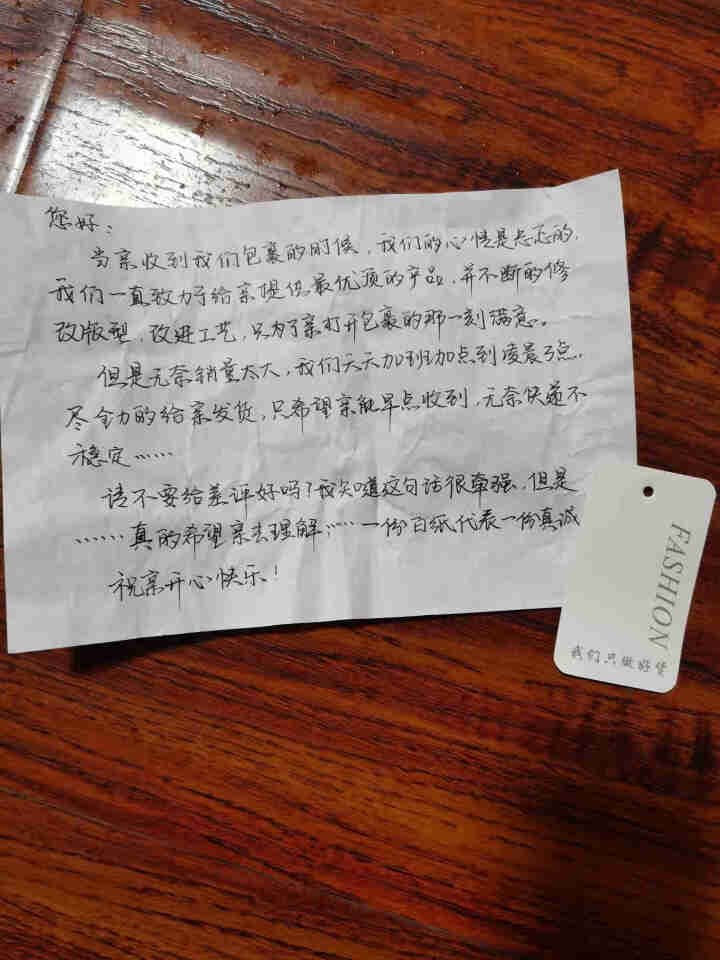 您好:
当亲收到我们包裹的时候,我们的心情是忐忑的.
我们一直致力于给亲提供最优质的产品,并不断的修
改版型,改进工艺,只为了亲打开包裹的那一刻满意。
但是无奈销量太大,我们天天加班加点到凌晨3点.
尽全力的给亲发货,只希望亲能早点收到,无奈快递不
稳定……
请不要给差评好吗?我知道这句话很牵强,但是
……真的希望亲去理解……一份白纸代表一份真诚
祝亲开心快乐!
FASHION
我们只做好货